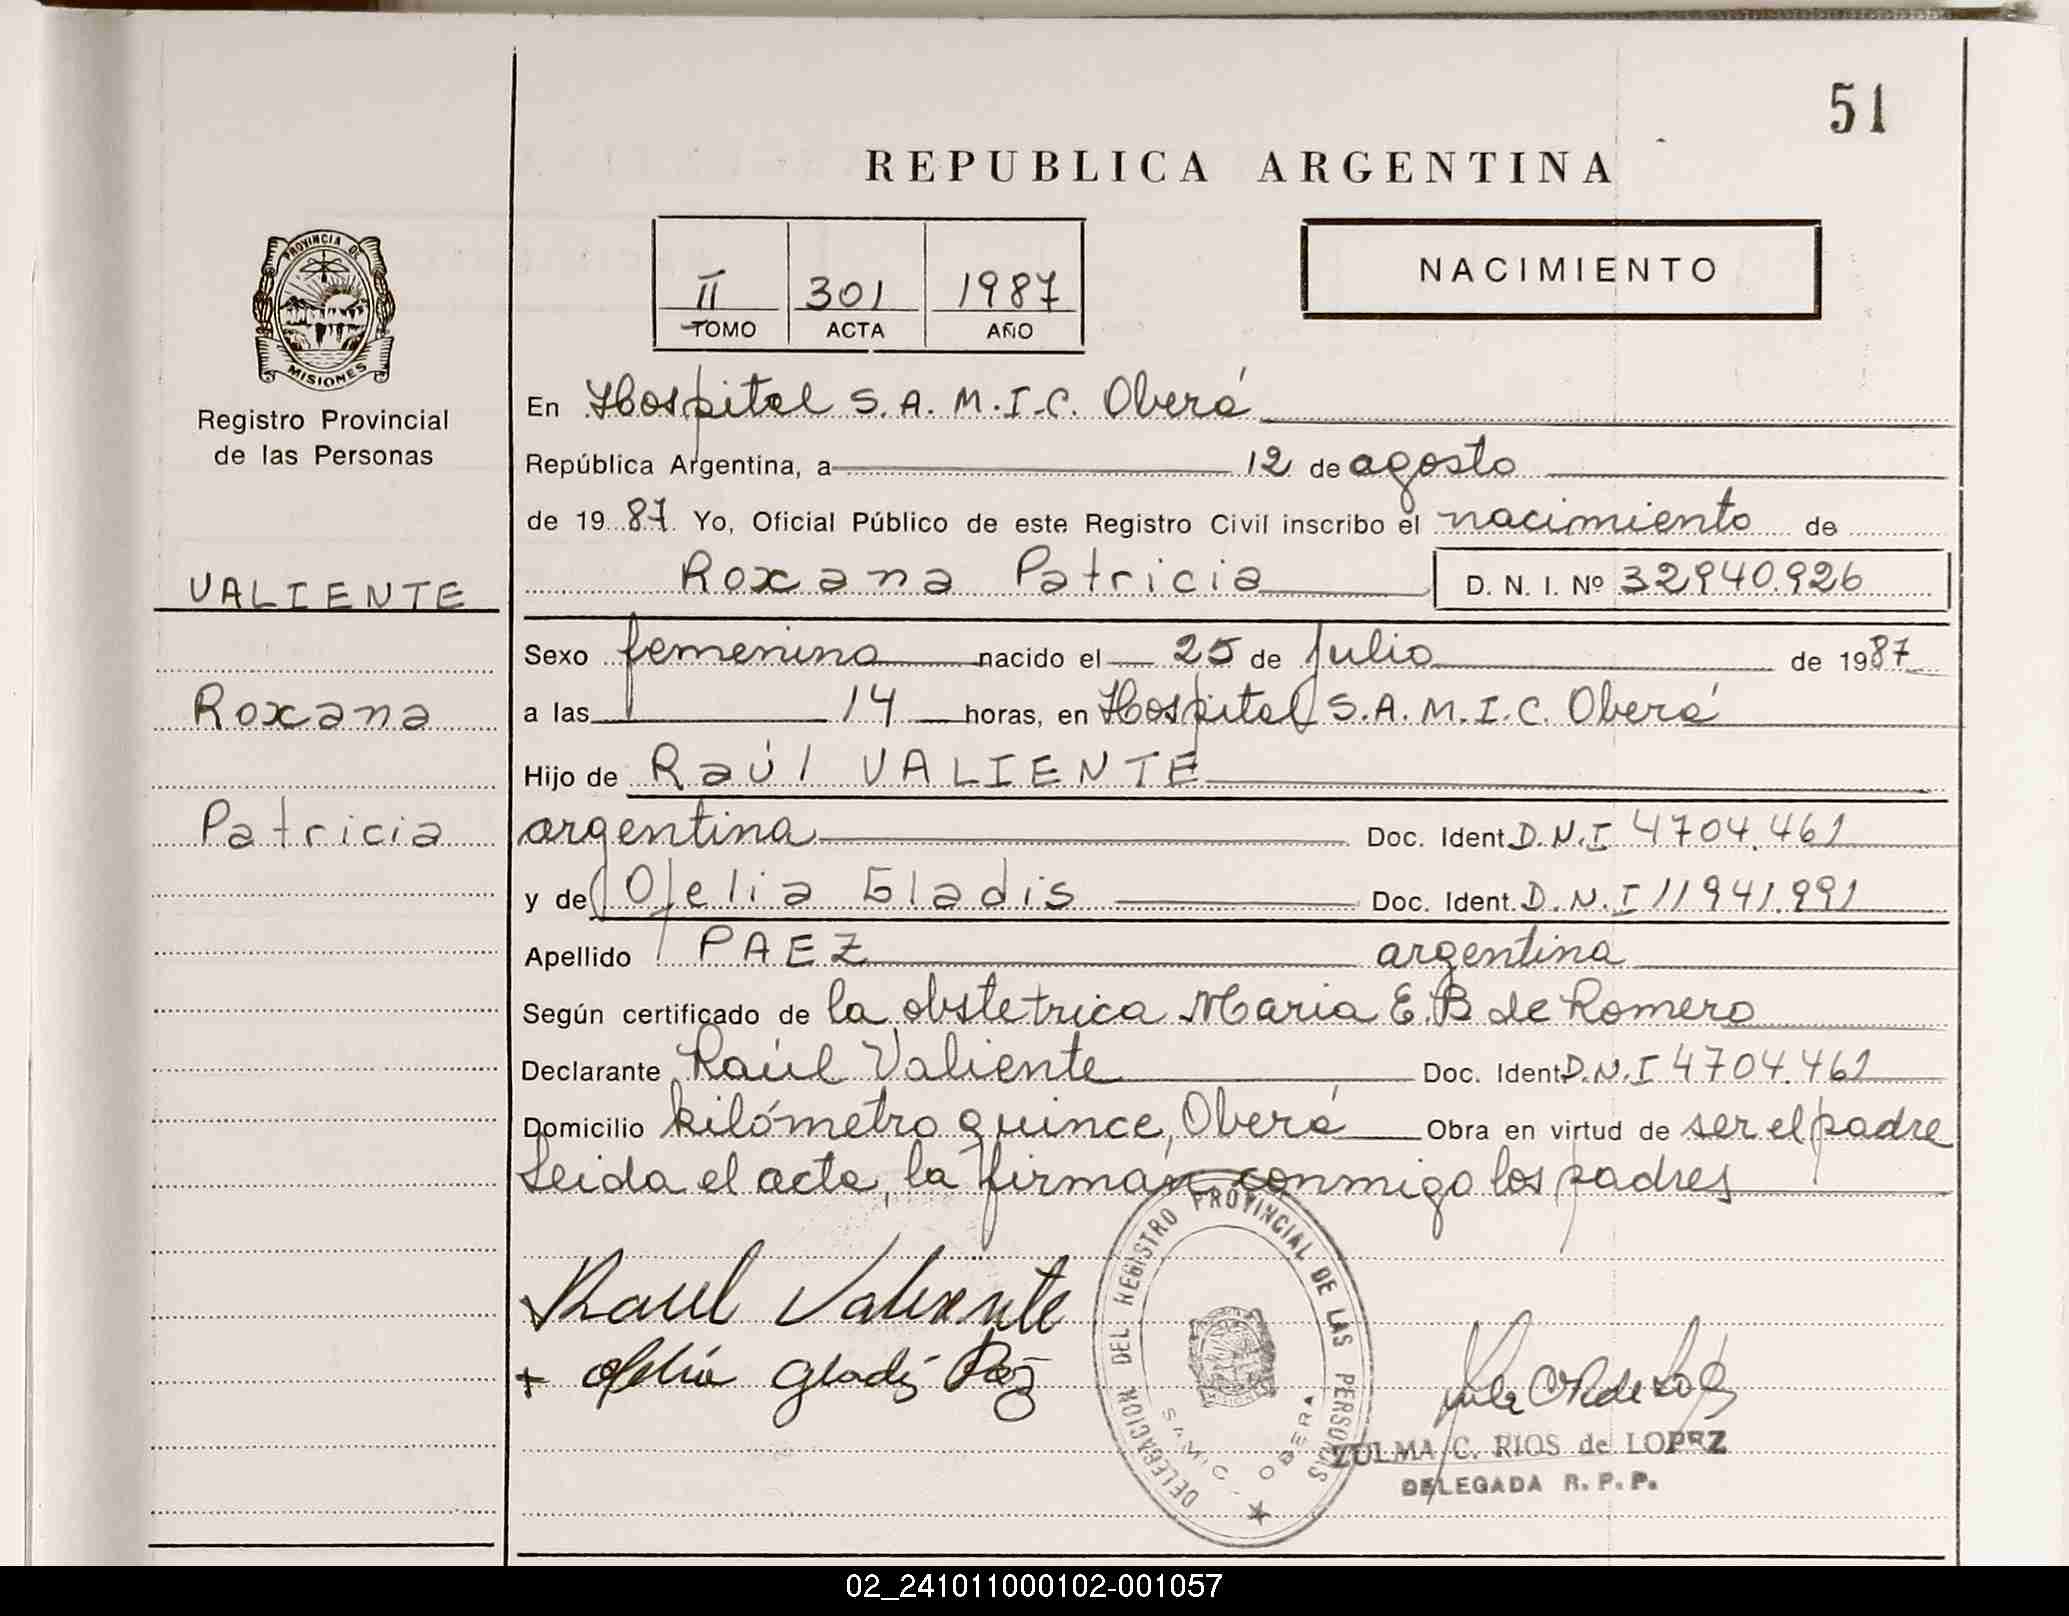 51
REPUBLICA ARGENTINA
II 301 1987
TOMO ACTA AÑO
NACIMIENTO
PROVINCIA DE
MISIONES
Registro Provincial
de las Personas
VALIENTE
Roxana
Patricia
En Hospital S.A.M.I.C. Oberá
República Argentina, a 12 de agosto
de 1987. Yo, Oficial Público de este Registro Civil inscribo el nacimiento de
Roxana Patricia D. N. I. Nº 32940.926
Sexo femenino nacido el 25 de julio de 1987
a las 14 horas, en Hospital S.A.M.I.C. Oberá
Hijo de Raúl VALIENTE
argentina Doc. Ident. D.N.I 4704.461
y de Ofelia Gladis Doc. Ident. D.N.I 11941.991
Apellido PAEZ argentina
Según certificado de la obstetrica Maria E.B de Romero
Declarante Raúl Valiente Doc. Ident. D.N.I 4704.461
Domicilio kilómetro quince, Oberá Obra en virtud de ser el padre
Leida el acta, la firman conmigo los padres
Raul Valiente
+ Ofelia Gladys Paez
DELEGACION DEL REGISTRO PROVINCIAL DE LAS PERSONAS
SAMIC - OBERA
ZULMA C. RIOS de LOPEZ
DELEGADA R. P. P.
02_241011000102-001057